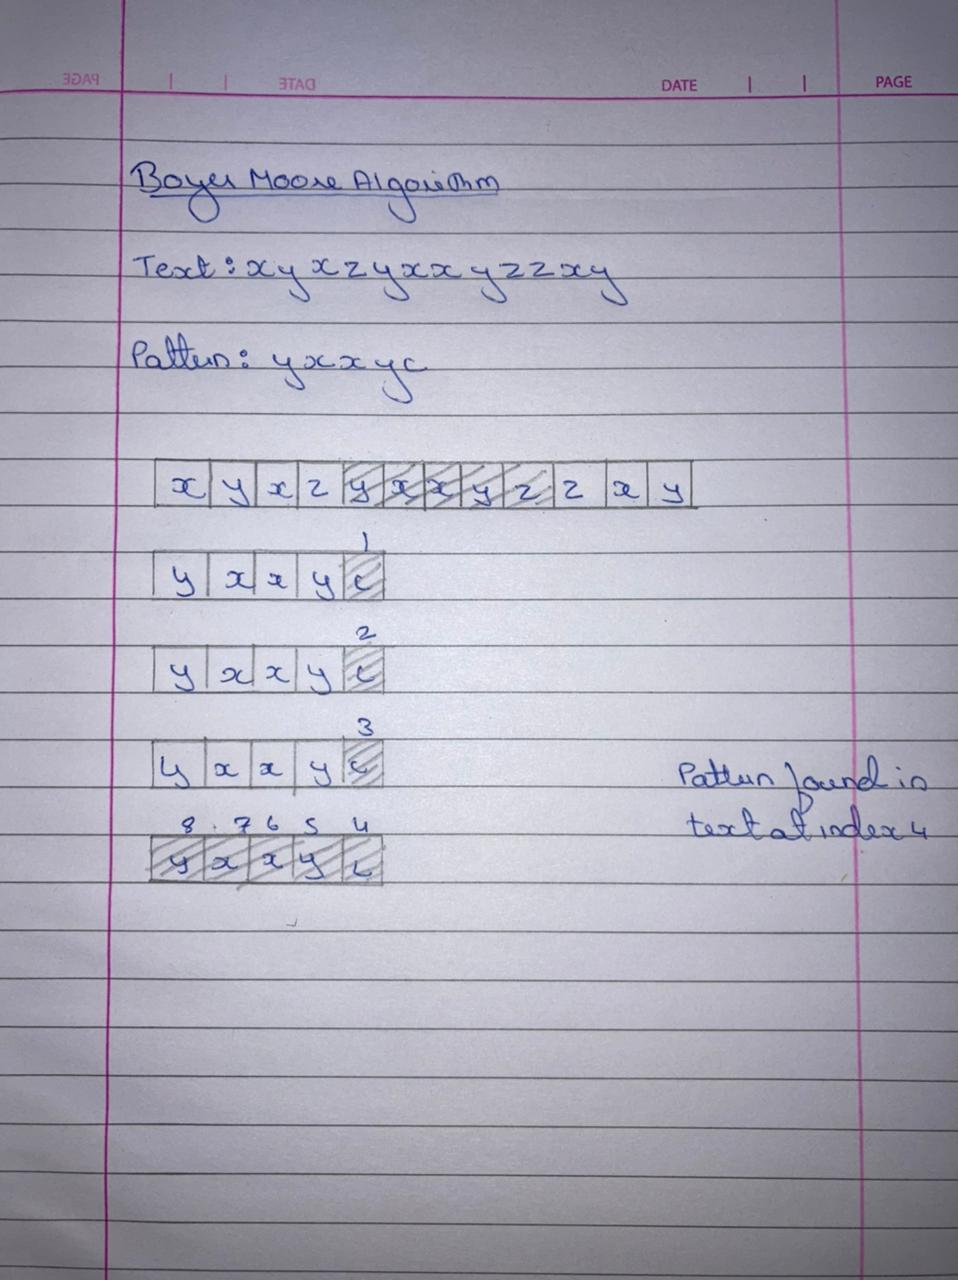 PAGE DATE DATE PAGE
Boyer Moore Algorithm
Text: xyxzyxxyzzxy
Pattern: yxxyc
x y x z y x x y z z x y
1
y x x y c
2
y x x y c
3
y x x y c
8. 7 6 5 4
y x x y c
Pattern found in
text at index 4